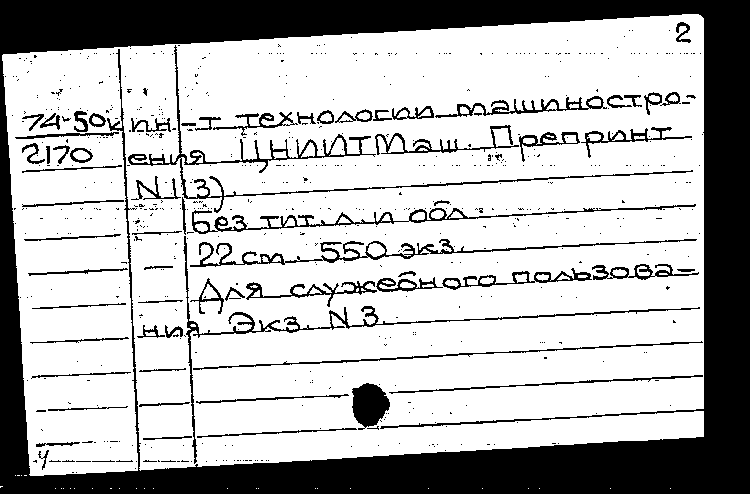 2
74-50к ин-т технологии машиностро-
2170 ения ЦНИИТМаш. Препринт
N 1(3).
Без тит. л. и обл.
22 cm. 550 экз.
Для служебного пользова-
ния. Экз. N 3.